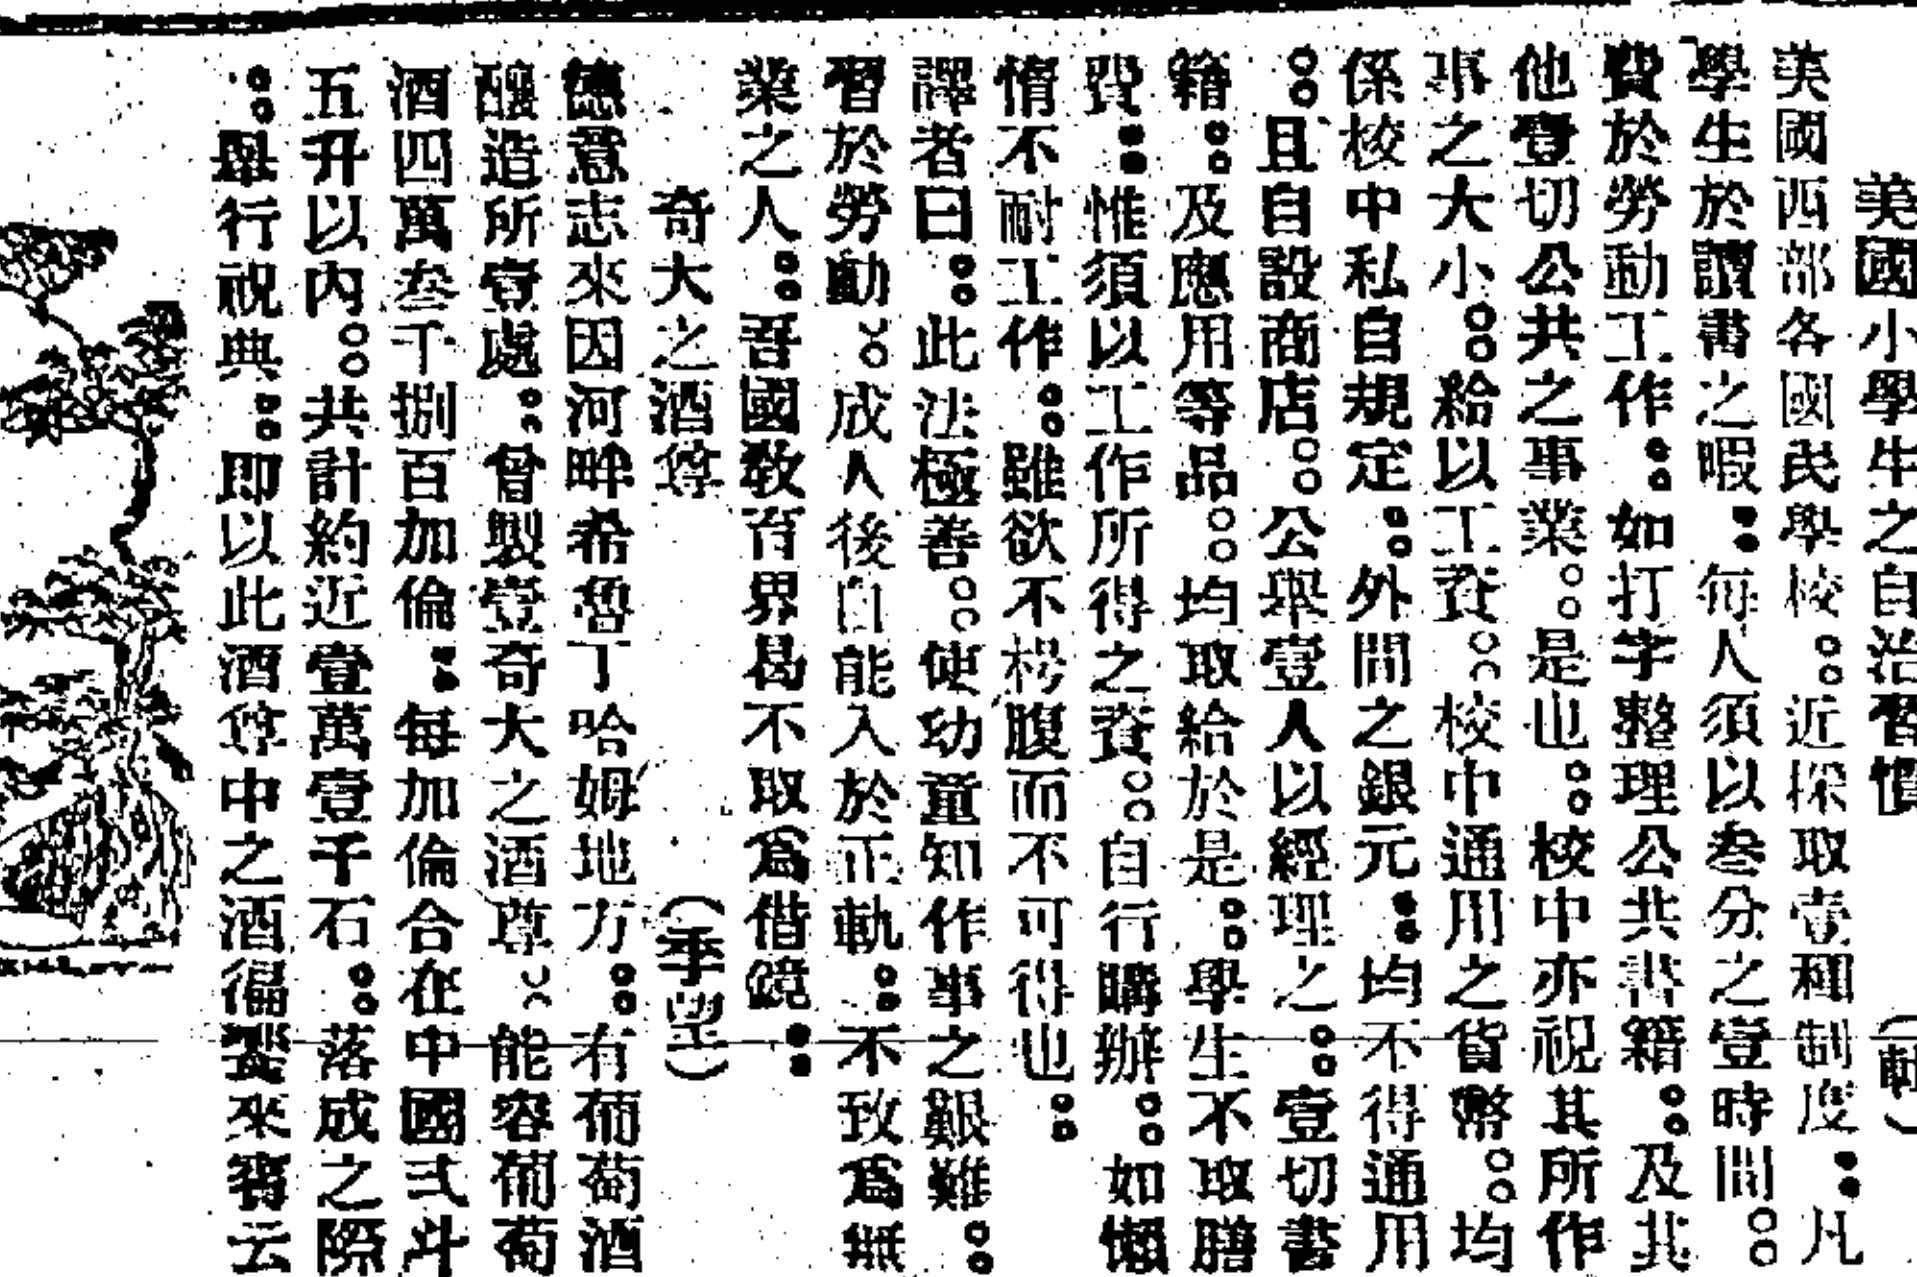 美國小學生之自治習慣（軔）
美國西部各國民學校。。近採取壹種制度。。凡
學生於讀書之暇。。每人須以叁分之壹時間。。
費於勞動工作。。如打字整理公共書籍。。及其
他壹切公共之事業。。是也。。校中亦視其所作
事之大小。。給以工資。。校中通用之貨幣。。均
係校中私自規定。。外間之銀元。。均不得通用
。。且自設商店。。公舉壹人以經理之。。壹切書
籍。。及應用等品。。均取給於是。。學生不取膳
費。。惟須以工作所得之資。。自行購辦。。如懶
惰不耐工作。。雖欲不枵腹而不可得也。。
譯者曰。。此法極善。。使幼童知作事之艱難。。
習於勞動。。成人後自能入於正軌。。不致爲無
業之人。。吾國敎育界曷不取爲借鏡。。
奇大之酒尊（季望）
德意志來因河畔希魯丁哈姆地方。。有葡萄酒
釀造所壹處。。曾製壹奇大之酒尊。。能容葡萄
酒四萬叁千捌百加倫。。每加倫合在中國弍斗
五升以內。。共計約近壹萬壹千石。。落成之際
。。舉行祝典。。即以此酒尊中之酒徧饗來賓云